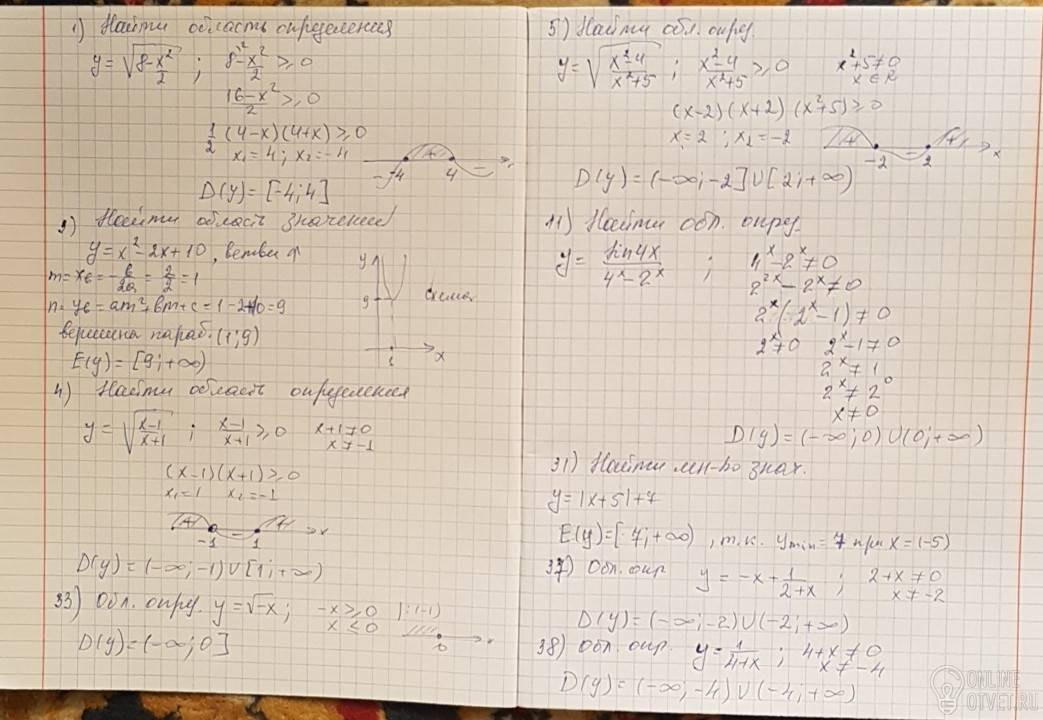 1) Найти область определения
y = √(8 - x²/2) ; 8 - x²/2 ≥ 0
(16 - x²)/2 ≥ 0
1/2 (4-x)(4+x) ≥ 0
x₁ = 4; x₂ = -4
- -4 + 4 - x
D(y) = [-4; 4]
2) Найти область значений
y = x² - 2x + 10, ветви ↑
m = xв = -b/2a = 2/2 = 1
n = yв = am² + bm + c = 1 - 2 + 10 = 9
вершина параб. (1; 9)
E(y) = [9; +∞)
y 9 1 x схема
4) Найти область определения
y = √((x-1)/(x+1)) ; (x-1)/(x+1) ≥ 0 x+1 ≠ 0
x ≠ -1
(x-1)(x+1) ≥ 0
x₁ = 1 x₂ = -1
+ -1 - 1 + x
D(y) = (-∞; -1) ∪ [1; +∞)
33) Обл. опред. y = √-x ; -x ≥ 0 |:(-1)
x ≤ 0
0 x
D(y) = (-∞; 0]
5) Найти обл. опред.
y = √((x²-4)/(x²+5)) ; (x²-4)/(x²+5) ≥ 0 x²+5 ≠ 0
x ∈ R
(x-2)(x+2)(x²+5) ≥ 0
x₁ = 2 ; x₂ = -2
+ -2 - 2 + x
D(y) = (-∞; -2] ∪ [2; +∞)
11) Найти обл. опред.
y = sin4x/(4ˣ - 2ˣ) ; 4ˣ - 2ˣ ≠ 0
2²ˣ - 2ˣ ≠ 0
2ˣ(2ˣ - 1) ≠ 0
2ˣ ≠ 0 2ˣ - 1 ≠ 0
2ˣ ≠ 1
2ˣ ≠ 2⁰
x ≠ 0
D(y) = (-∞; 0) ∪ (0; +∞)
31) Найти мн-во знач.
y = |x+5| + 7
E(y) = [7; +∞) , т.к. ymin = 7 при x = (-5)
37) Обл. опр y = -x + 1/(2+x) ; 2+x ≠ 0
x ≠ -2
D(y) = (-∞; -2) ∪ (-2; +∞)
38) Обл. опр. y = 1/(4+x) ; 4+x ≠ 0
x ≠ -4
D(y) = (-∞; -4) ∪ (-4; +∞)
ONLINE
OTVET.RU